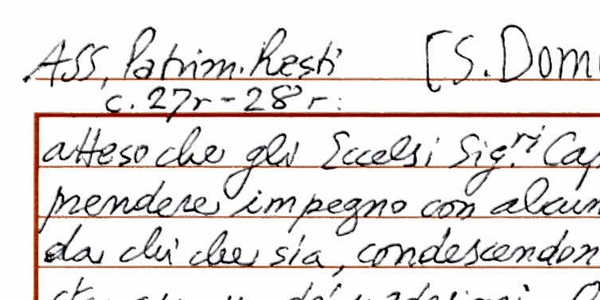 ASS, Patrim. Resti [S. Dom
c. 27r - 28r:
atteso che gli Eccelsi Sig.ri Cap
prendere impegno con alcun
da chi che sia, condescendon